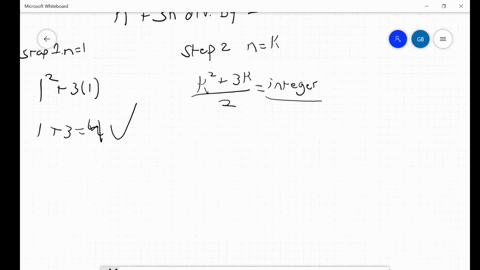 Microsoft Whiteboard
n² + 3n div. by 2
step 1. n=1
1² + 3(1)
1 + 3 = 4 ✓
step 2 n=K
K² + 3K
2
= integer
GB